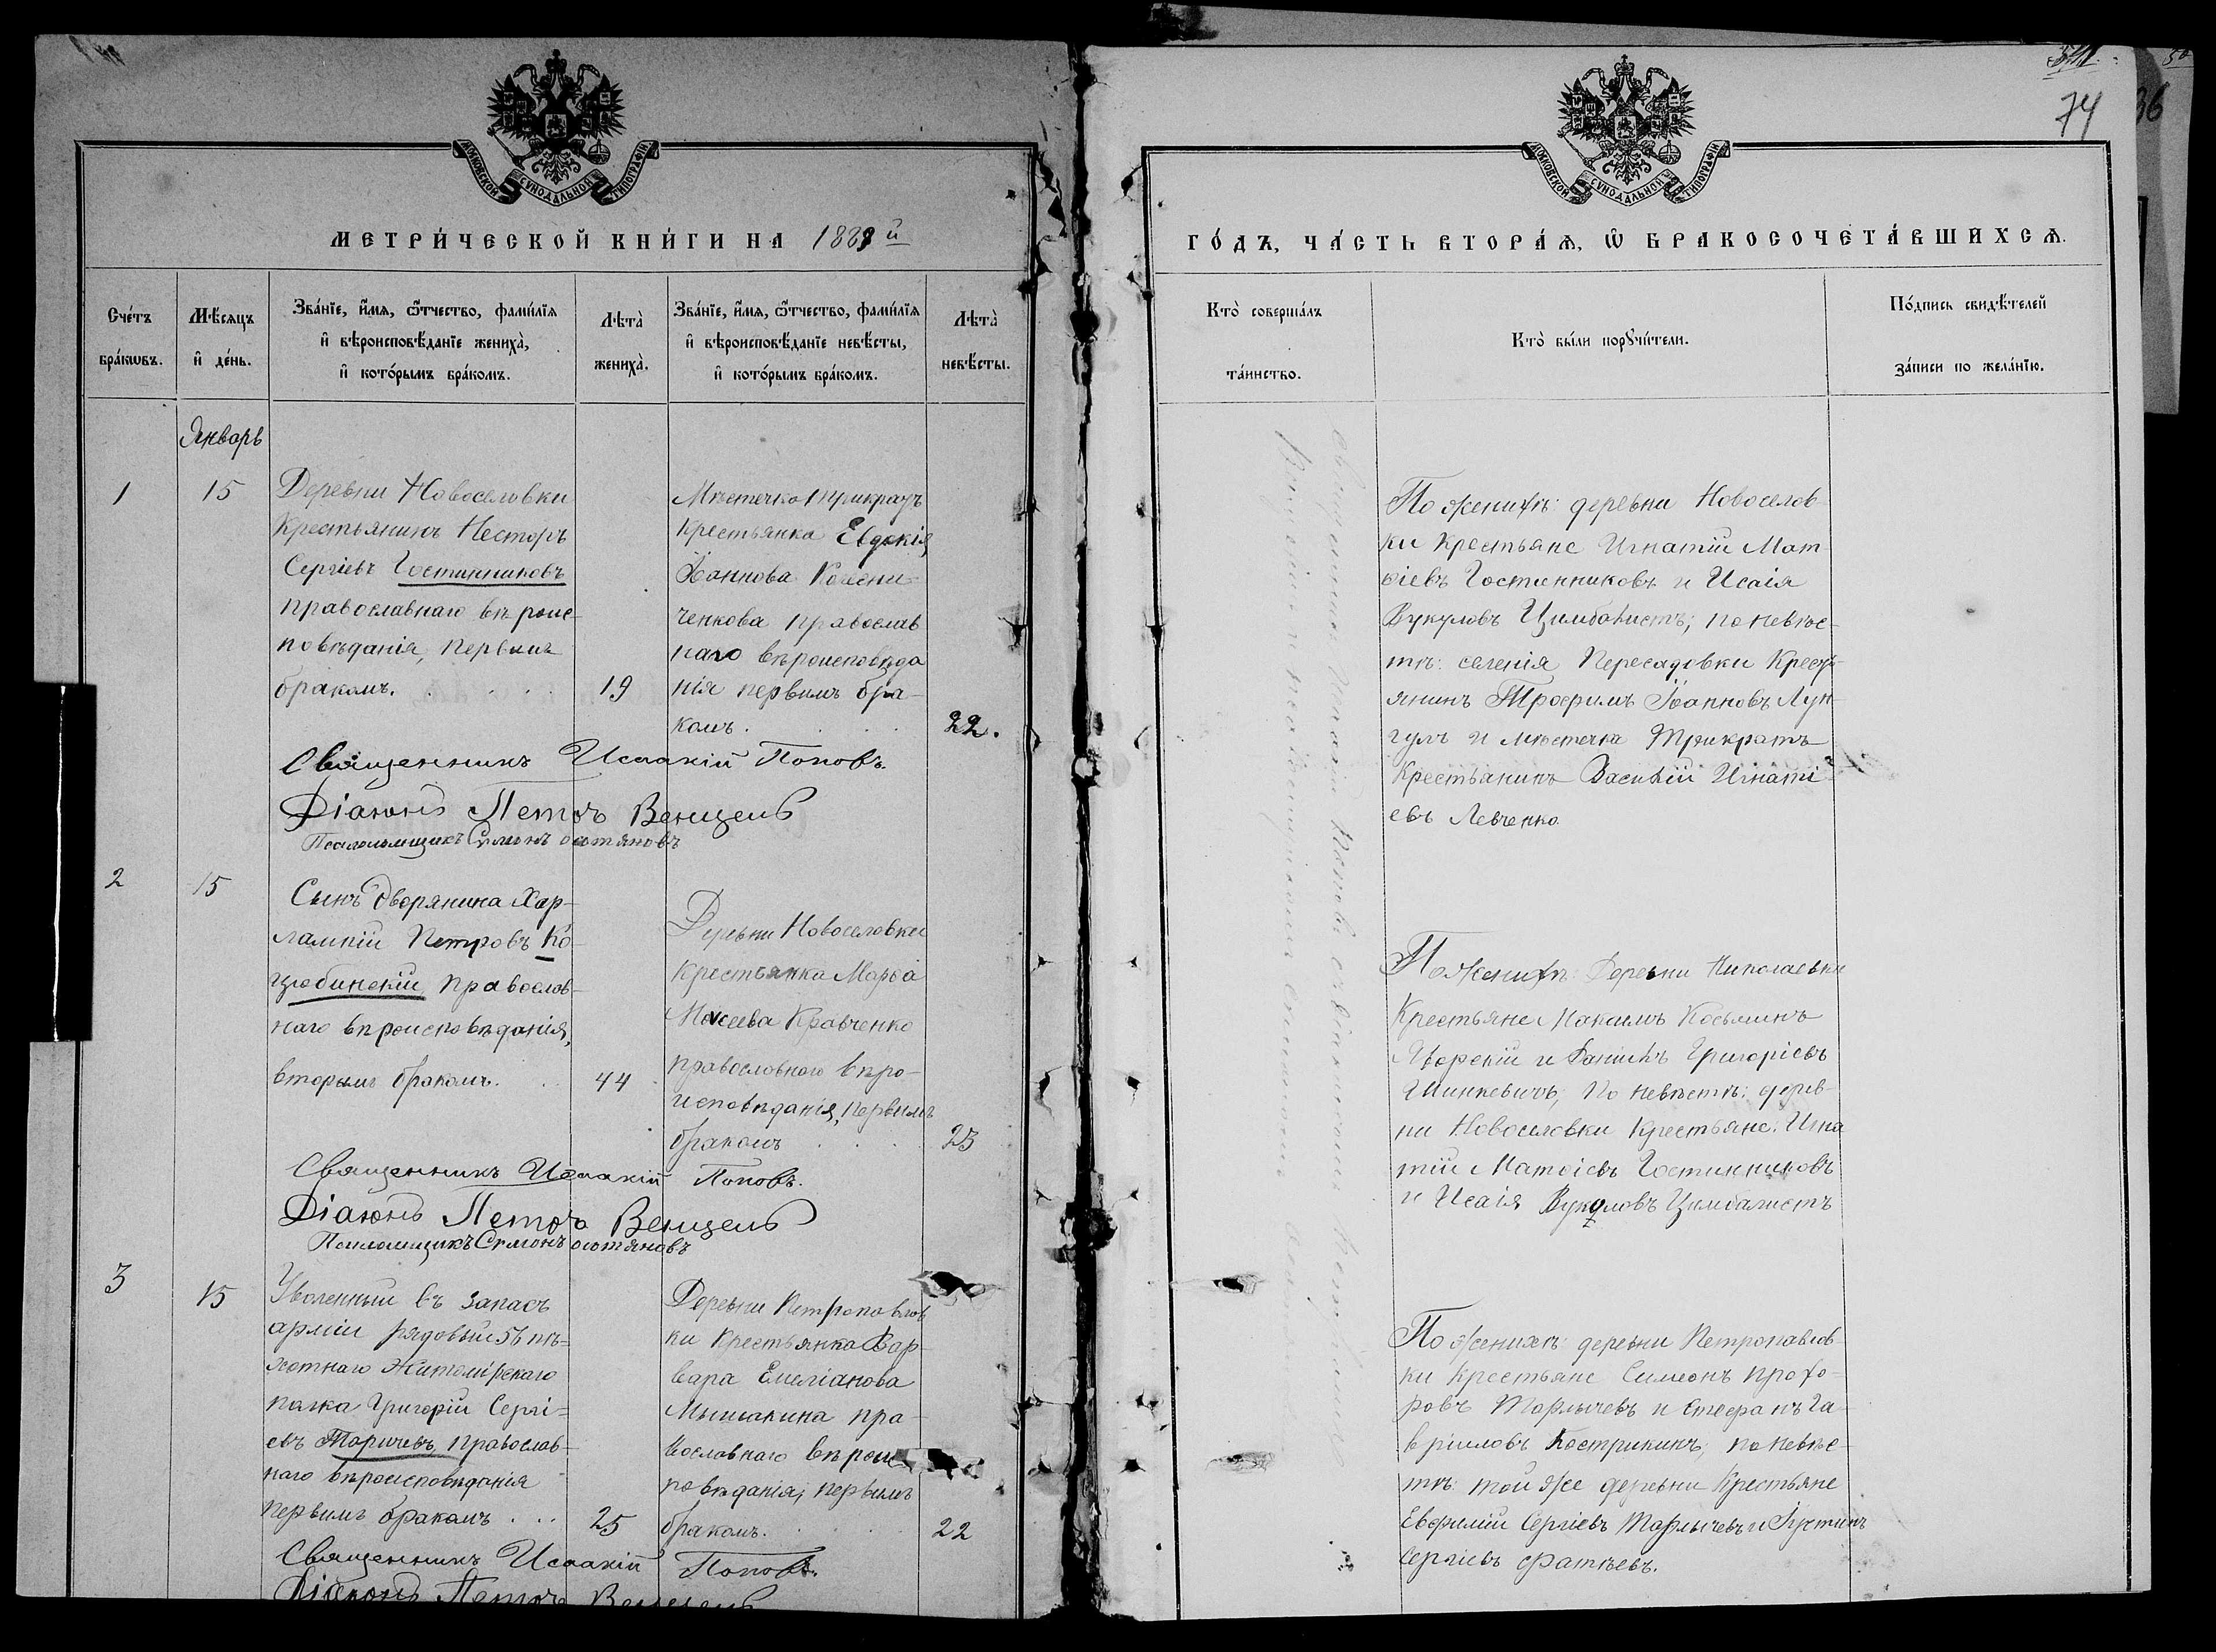 74
36
МЕТРИ́ЧЕСКОЙ КНИ́ГИ НА 1889й
Сче́тъ бра́кωвъ.
Мѣ́сяцъ и҆ де́нь.
Зва́нїе, и҆́мѧ, ѻ҆́тчество, фами́лїѧ и҆ вѣроисповѣ́данїе жениха̀, и҆ кото́рымъ бра́комъ.
Лѣта̀ жениха̀.
Зва́нїе, и҆́мѧ, ѻ҆́тчество, фами́лїѧ и҆ вѣроисповѣ́данїе невѣ́сты, и҆ кото́рымъ бра́комъ.
Лѣта̀ невѣ́сты.
Январь
1
15
Деревни Новоселовки
Крестьянинъ Несторъ
Сергіевъ Гостинниковъ
православнаго вѣроис-
повѣданія, первымъ
бракомъ.
19
Мѣстечка Трикратъ
Крестьянка Евдокія
Іоаннова Колесни-
ченкова православ
наго вѣроисповѣда
нія первымъ бра-
комъ.
22.
Священникъ Исаакій Поповъ.
Діаконъ Петръ Венцель
Псаломщикъ Сѵмонъ
2
15
Сынъ дворянина Хар-
лампій Петровъ Ко-
цюбинскій, православ-
наго вѣроисповѣданія,
вторымъ бракомъ.
44
Деревни Новоселовки
Крестьянка Марѳа
Моисеева Кравченко
православнаго вѣро-
исповѣданія, первымъ
бракомъ
23
Священникъ Исаакій Поповъ.
Діаконъ Петръ Венцель
Псаломщикъ Сѵмонъ
3
15
Уволенный въ запасъ
арміи рядовый 56 пѣ-
хотнаго Житомірскаго
полка Григорій Сергі-
евъ Торичевъ, православ-
наго вѣроисповѣданія
первымъ бракомъ
25
Деревни Петропавлов
ки Крестьянка Вар-
вара Емеліанова
Мышакина пра-
вославнаго вѣроис
повѣданія, первымъ
бракомъ.
22
Священникъ Исаакій Поповъ.
Діаконъ Петръ Венцель
ГО́ДЪ, ЧА́СТЬ ВТОРА́Ѧ, Ѽ БРАКОСОЧЕТА́ВШИХСѦ.
Кто̀ соверша́лъ та́инство.
Кто̀ бы́ли порꙋчи́тели.
По́дпись свидѣ́телей за́писи по жела́нїю.
По женихѣ: деревни Новоселов-
ки Крестьяне Игнатій Мат-
ѳіевъ Гостинниковъ и Исаія
Вукуловъ Цимбалистъ; по невѣс-
тѣ: селенія Пересадовки Кресть-
янинъ Трофимъ Іоанновъ Лун-
гулъ и мѣстечка Трикратъ
Крестьянинъ Василій Игнаті-
евъ Левченко.
По женихѣ: Деревни Николаевки
Крестьяне Максимъ Косьминъ
Яворскій и Даніилъ Григоріевъ
Шинкевичъ; По невѣстѣ: дерев-
ни Новоселовки Крестьяне: Игна
тій Матѳіевъ Гостинниковъ
и Исаія Вукуловъ Цимбалистъ
По женихѣ: деревни Петропавлов-
ки Крестьяне Симеонъ Прохо-
ровъ Торлычевъ и Стефанъ Га-
вріиловъ Кострикинъ; по невѣс-
тѣ: той же деревни Крестьяне
Евфимій Сергіевъ Торлычевъ и Іустинъ
Сергіевъ Фатѣевъ.
МОСКОВСКОЙ СѴНОДАЛЬНОЙ ТИПОГРАФІИ
МОСКОВСКОЙ СѴНОДАЛЬНОЙ ТИПОГРАФІИ